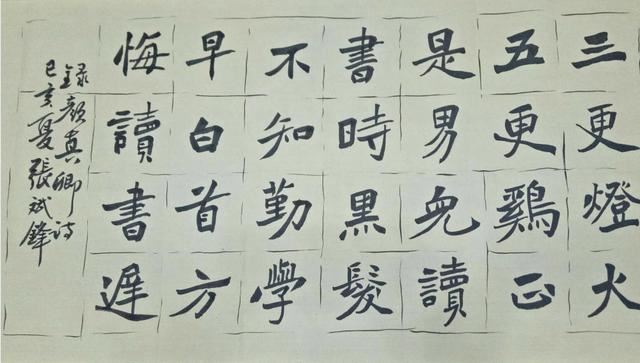 三更燈火
五更鷄正
是男兒讀
書時黑髮
不知勤學
早白首方
悔讀書遲
錄顏真卿詩
己亥夏張斌鋒